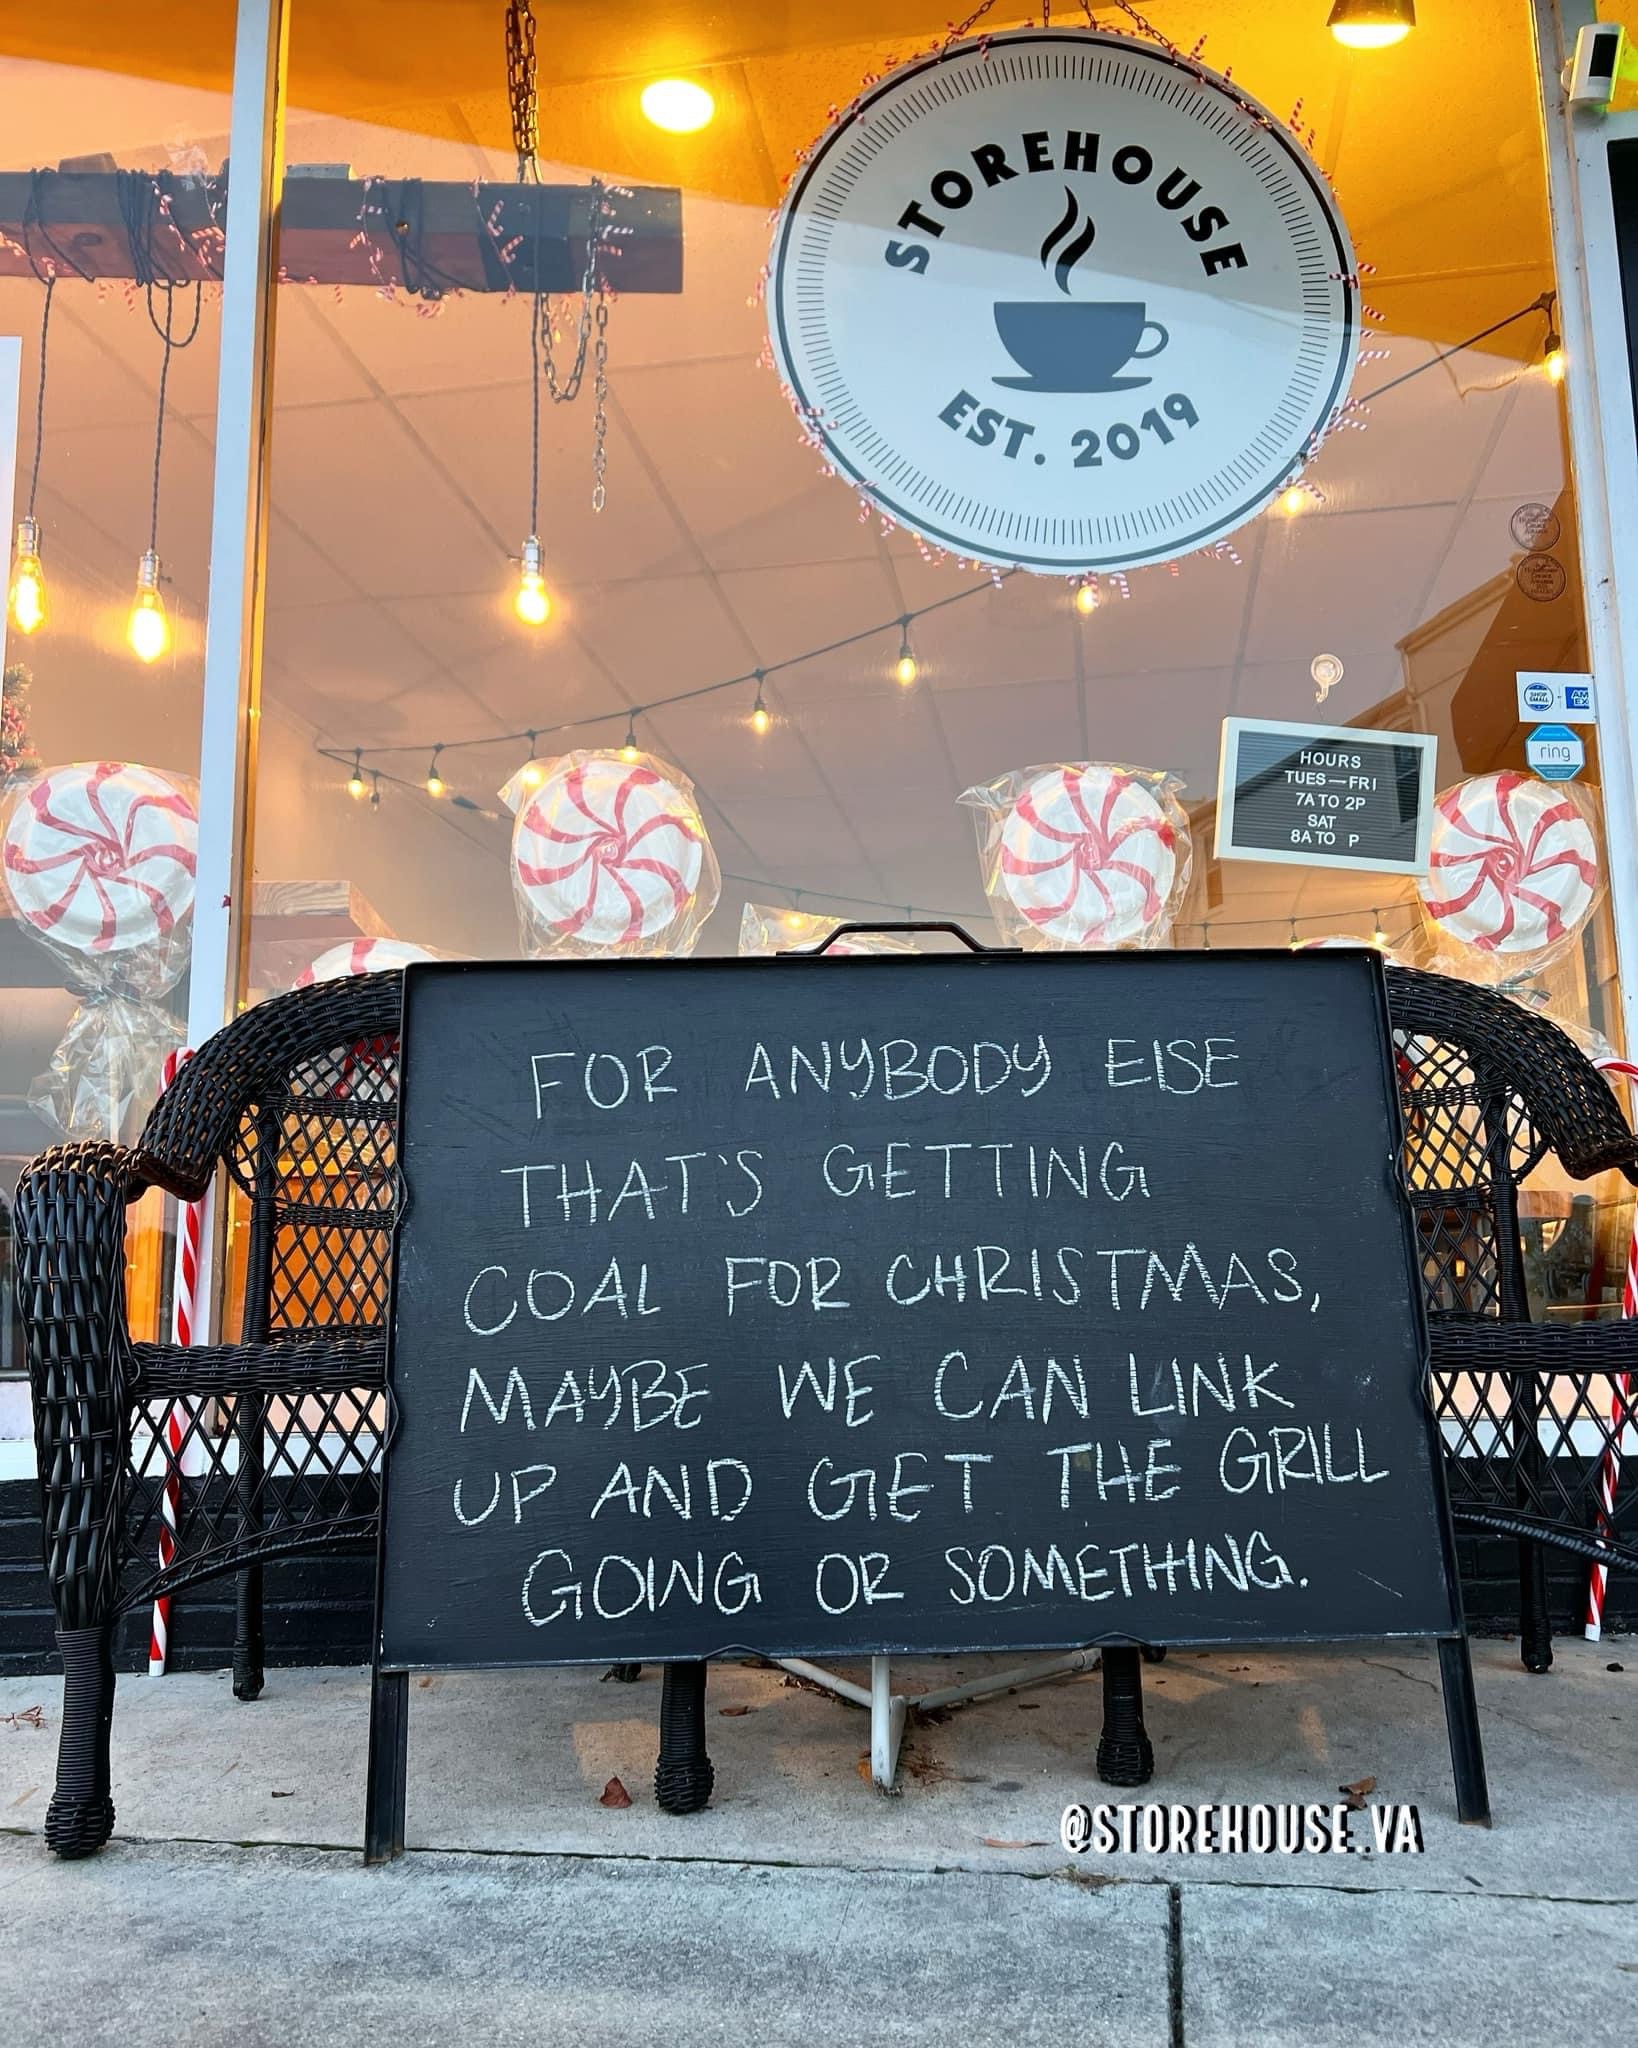 STOREHOUSE
EST. 2019
SHOP
SMALL
AM
EX
ring
HOURS
TUES—FRI
7A TO 2P
SAT
8A TO P
FOR ANYBODY ELSE
THAT'S GETTING
COAL FOR CHRISTMAS,
MAYBE WE CAN LINK
UP AND GET THE GRILL
GOING OR SOMETHING.
@STOREHOUSE.VA